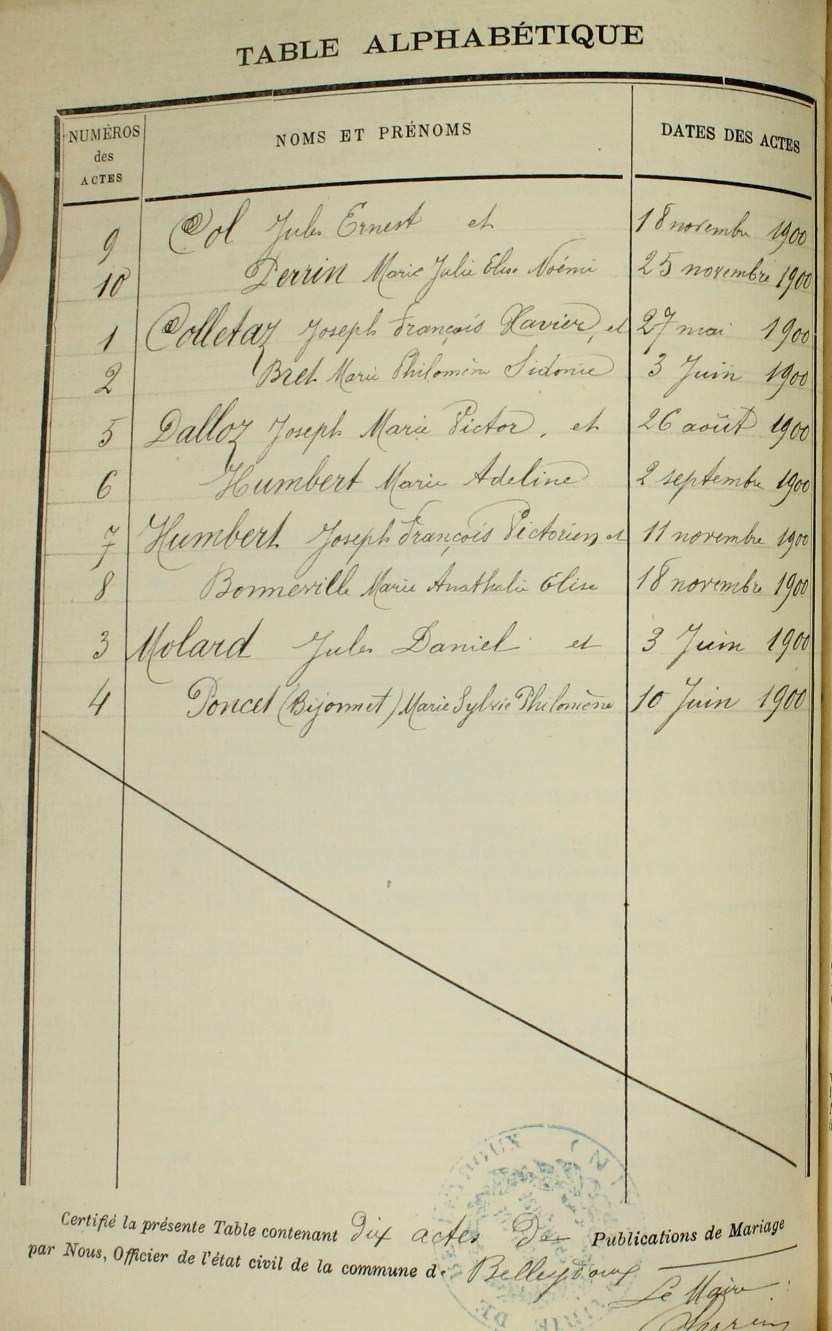 TABLE ALPHABÉTIQUE
NUMÉROS des ACTES NOMS ET PRÉNOMS DATES DES ACTES
9 Col Jules Ernest et 18 novembre 1900
10 Perrin Marie Julie Elise Noémi 25 novembre 1900
1 Colletaz Joseph François Xavier, et 27 mai 1900
2 Bret Marie Philomène Sidonie 3 Juin 1900
5 Dalloz Joseph Marie Victor, et 26 août 1900
6 Humbert Marie Adeline 2 septembre 1900
7 Humbert Joseph François Victorien et 11 novembre 1900
8 Bonneville Marie Anathalie Elise 18 novembre 1900
3 Molard Jules Daniel et 3 Juin 1900
4 Poncet (Bijonnet) Marie Sylvie Philomène 10 Juin 1900
Certifié la présente Table contenant dix actes De Publications de Mariage
par Nous, Officier de l'état civil de la commune de Belleydoux
Le Maire